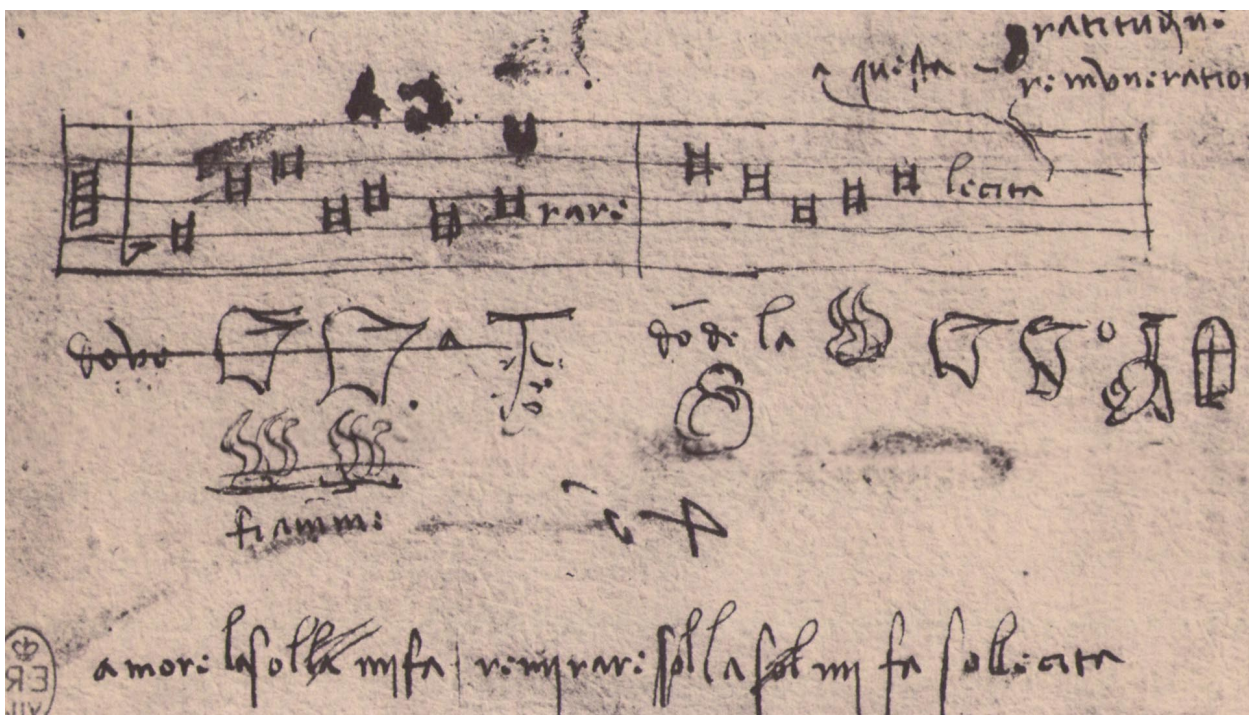 a questa
remuneration
rare
lecita
dō de la
fiamme
amore lasolla mi fa remirare sol la sol mi fa sollecita